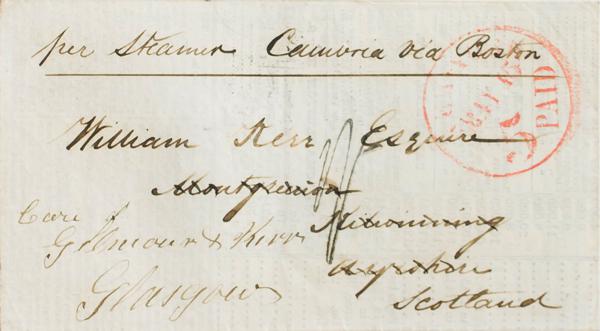 per Steamer Cambria via Boston
PAID
MAY
5
William Kerr Esquire
Care of
Gilmour & Kerr
Kilwinning
Glasgow
Ayrshire
Scotland